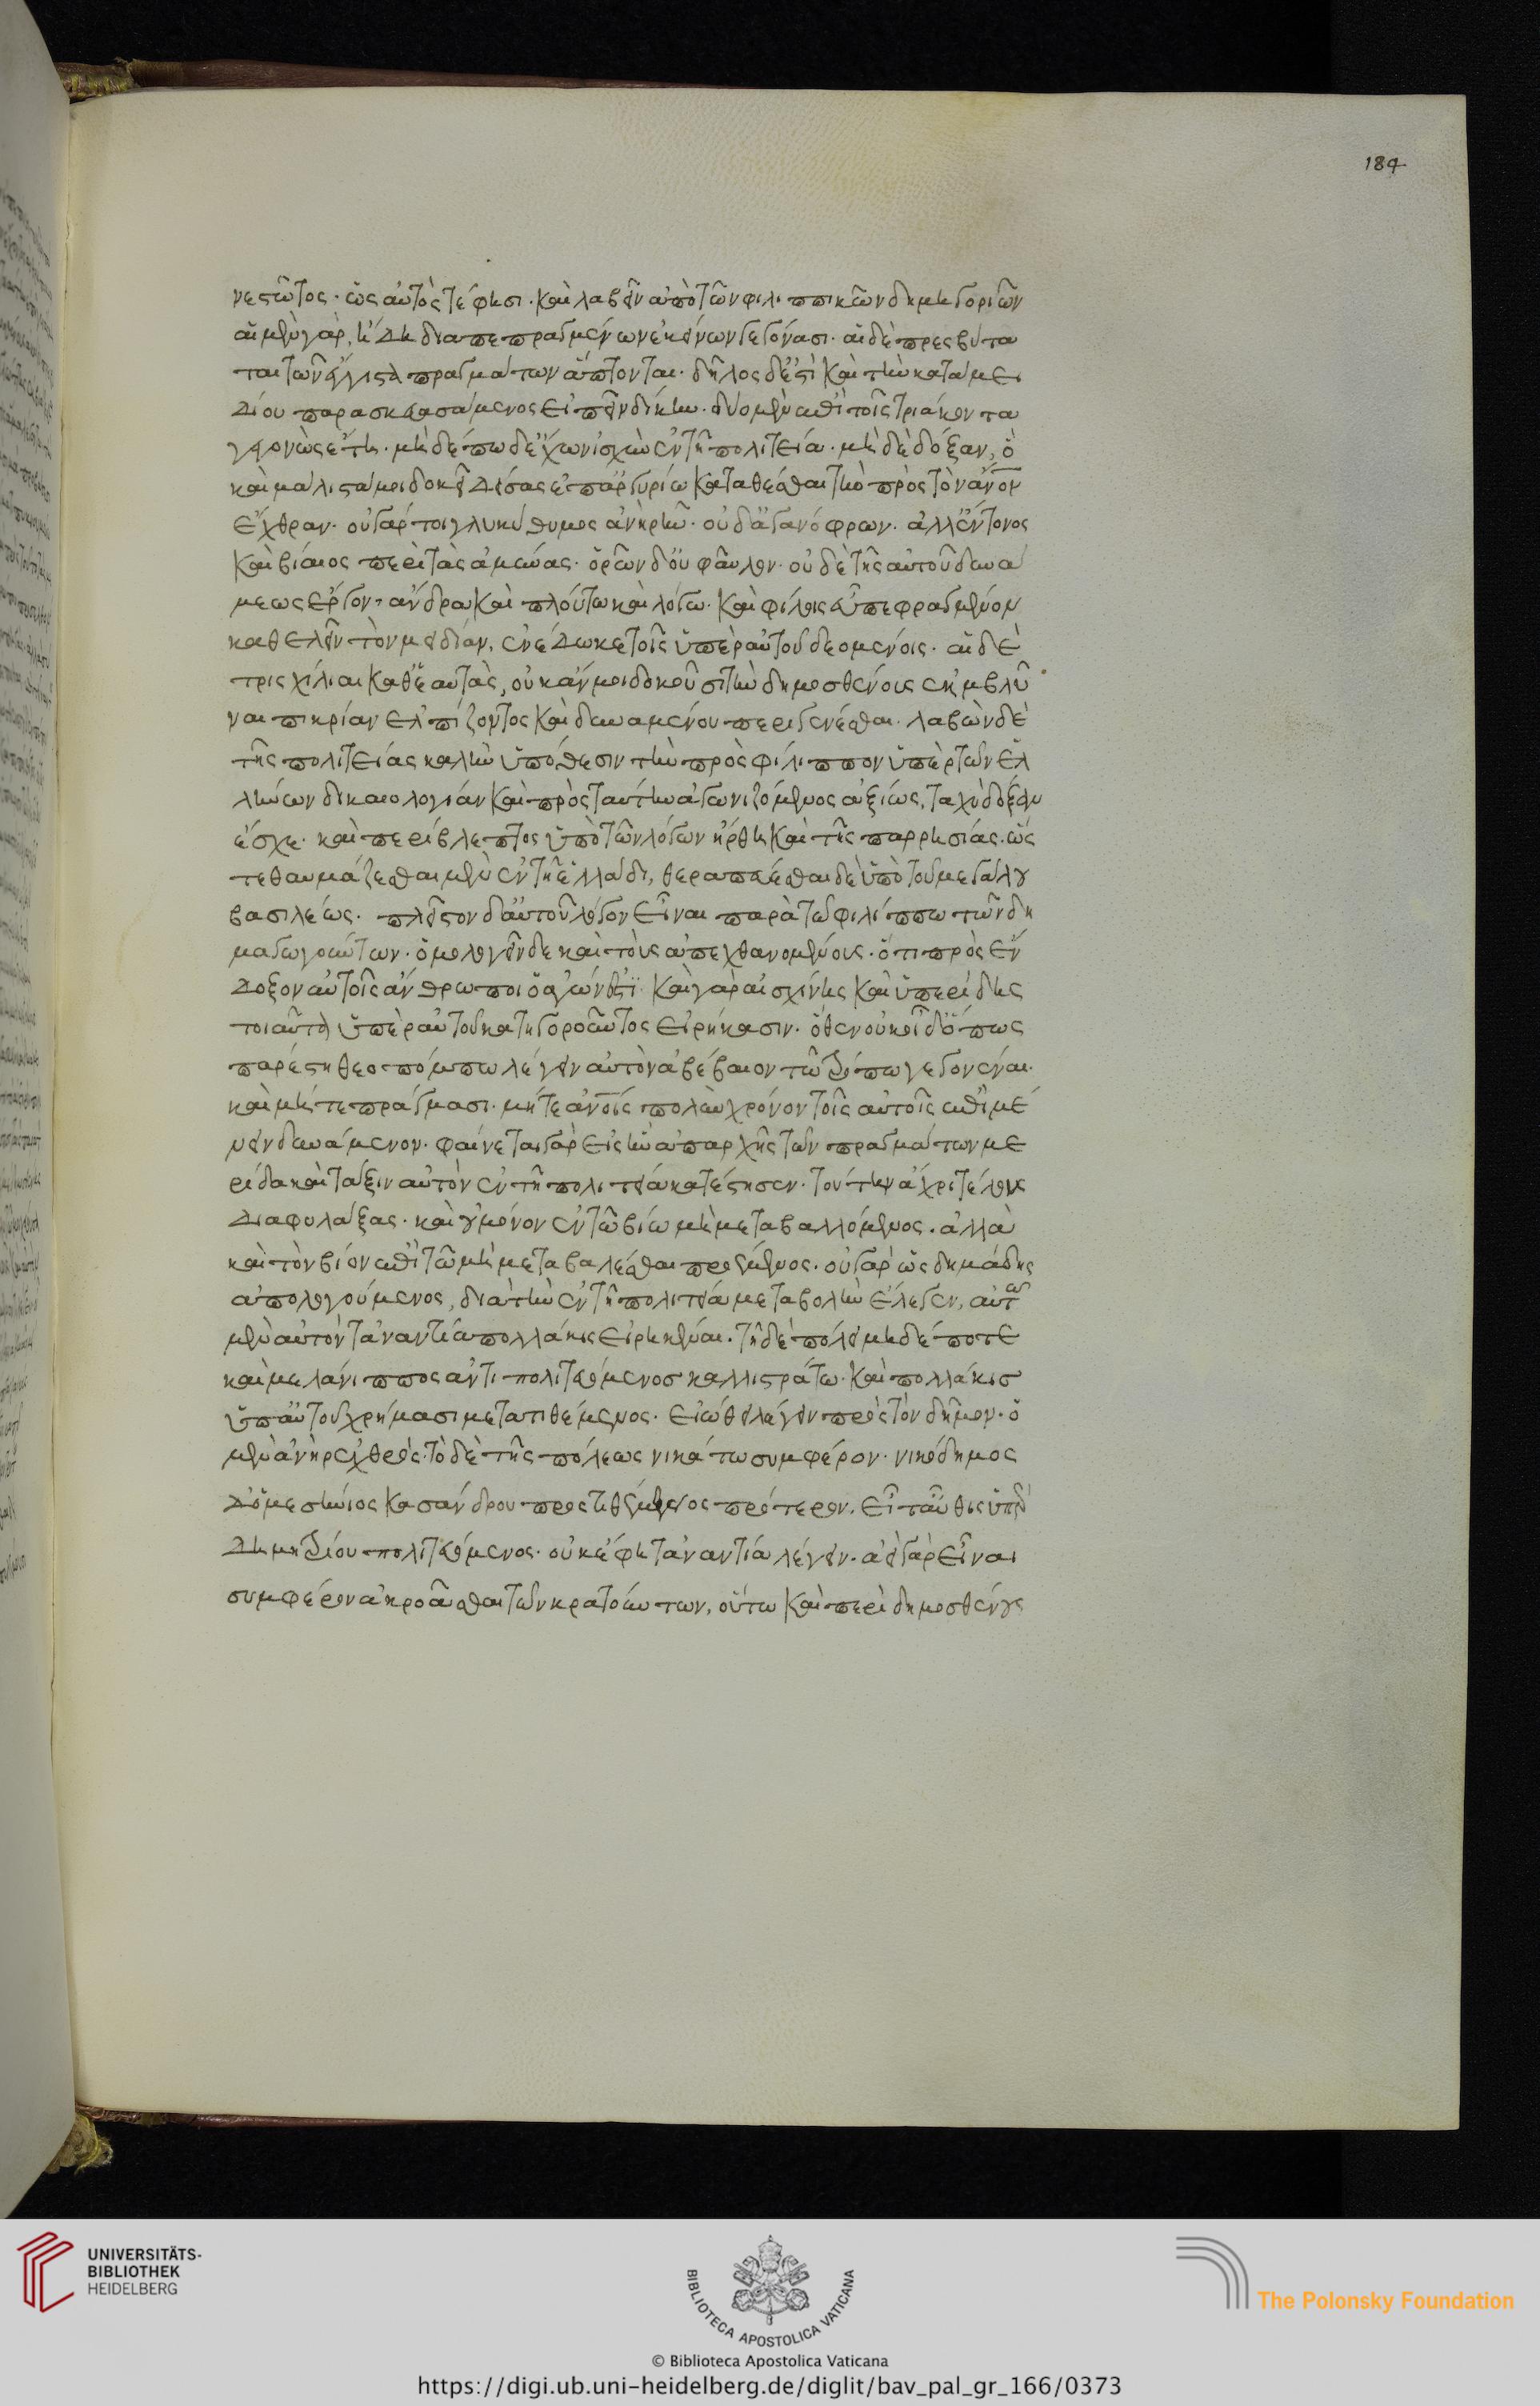 184
νεστῶτος· ὡς αὐτός τέ φησι· καὶ λαβεῖν ἀπὸ τῶν φιλιππικῶν δημηγοριῶν
αἱ μὲν γὰρ, ἤδη διαπεπραγμένων ἐκείνων γεγόνασι· αἱ δὲ πρεσβύτα
ται τῶν ἔγγιστα πραγμάτων ἅπτονται· δῆλος δ' ἐστὶ καὶ τὴν κατὰ μει
δίου παρασκευασάμενος εἰπεῖν δίκην· δύο μὲν ἐπὶ τοῖς τριάκοντα
γεγονὼς ἔτη· μηδέπω δ' ἔχων ἰσχὺν ἐν τῇ πολιτείᾳ· μηδὲ δόξαν, ὃ
καὶ μάλιστά μοι δοκεῖ δείσας ἐπ' ἀργυρίῳ καταθέσθαι τὴν πρὸς τὸν ἄνον
ἔχθραν· οὐ γάρ τοι γλυκύθυμος ἀνὴρ ἦν· οὐδ' ἀγανόφρων· ἀλλ' ἔντονος
καὶ βίαιος περὶ τὰς ἀμύνας· ὁρῶν δ' οὐ φαῦλον· οὐδὲ τῆς αὐτοῦ δυνά
μεως ἔργον, ἄνδρα καὶ πλούτῳ καὶ λόγῳ· καὶ φίλοις εὖ πεφραγμένον
καθελεῖν τὸν μειδίαν, ἐνέδωκε τοῖς ὑπὲρ αὐτοῦ δεομένοις· αἱ δὲ
τρισχίλιαι καθ' ἑαυτὰς, οὐκ ἄν μοι δοκοῦσι τὴν δημοσθένους ἀμβλῦ
ναι πικρίαν ἐλπίζοντος καὶ δυναμένου περιγενέσθαι· λαβὼν δὲ
τῆς πολιτείας καλὴν ὑπόθεσιν τὴν πρὸς φίλιππον ὑπὲρ τῶν ἑλ
λήνων δικαιολογίαν καὶ πρὸς ταύτην ἀγωνιζόμενος ἀξίως, ταχὺ δόξαν
ἔσχε· καὶ περίβλεπτος ὑπὸ τῶν λόγων ἤρθη καὶ τῆς παρρησίας· ὥς
τε θαυμάζεσθαι μὲν ἐν τῇ ἑλλάδι, θεραπεύεσθαι δὲ ὑπὸ τοῦ μεγάλου
βασιλέως· πλεῖστον δ' αὐτοῦ λόγον εἶναι παρὰ τῷ φιλίππῳ τῶν δη
μαγωγούντων· ὁμολογεῖν δὲ καὶ τοὺς ἀπεχθανομένους· ὅτι πρὸς ἔν
δοξον αὐτοῖς ἄνθρωπον ὁ ἀγών ἐστι· καὶ γὰρ αἰσχίνης καὶ ὑπερίδης
τοιαῦτα ὑπὲρ αὐτοῦ κατηγοροῦντος εἰρήκασιν· ὅθεν οὐκ οἶδ' ὅπως
παρέστη θεοπόμπῳ λέγειν αὐτὸν ἀβέβαιον τῷ τρόπῳ γεγονέναι·
καὶ μήτε πράγμασι· μήτε ἀνοῖς πολὺν χρόνον τοῖς αὐτοῖς ἐπιμέ
νειν δυνάμενον· φαίνεται γὰρ εἰς ἣν ἀπαρχῆς τῶν πραγμάτων με
ρίδα καὶ τάξιν αὐτὸν ἐν τῇ πολιτείᾳ κατέστησεν· ταύτην ἄχρι τέλους
διαφυλάξας· καὶ οὐ μόνον ἐν τῷ βίῳ μὴ μεταβαλλόμενος· ἀλλὰ
καὶ τὸν βίον ἐπὶ τῷ μὴ μεταβαλέσθαι προέμενος· οὐ γὰρ ὡς δημάδης
ἀπολογούμενος, διὰ τὴν ἐν τῇ πολιτείᾳ μεταβολὴν ἔλεγεν, αὑτῷ
μὲν αὐτὸν τἀναντία πολλάκις εἰρηκέναι· τῇ δὲ πόλει μηδέποτε
καὶ μελάνιππος ἀντιπολιτευόμενος καλλιστράτῳ· καὶ πολλάκις
ὑπ' αὐτοῦ χρήμασι μετατιθέμενος· εἰώθει λέγειν πρὸς τὸν δῆμον· ὁ
μὲν ἀνὴρ ἐχθρός· τὸ δὲ τῆς πόλεως νικάτω συμφέρον· νικόδημος
δ' ὁ μεσήνιος κασάνδρου προστιθέμενος πρότερον, εἶτ' αὖθις ὑπὲρ
δημητρίου πολιτευόμενος· οὐκ ἔφη τἀναντία λέγειν· ἀεὶ γὰρ εἶναι
συμφέρον ἀκροᾶσθαι τῶν κρατούντων, οὕτω καὶ περὶ δημοσθένους
UNIVERSITÄTS-
BIBLIOTHEK
HEIDELBERG
BIBLIOTECA APOSTOLICA VATICANA
The Polonsky Foundation
© Biblioteca Apostolica Vaticana
https://digi.ub.uni-heidelberg.de/diglit/bav_pal_gr_166/0373